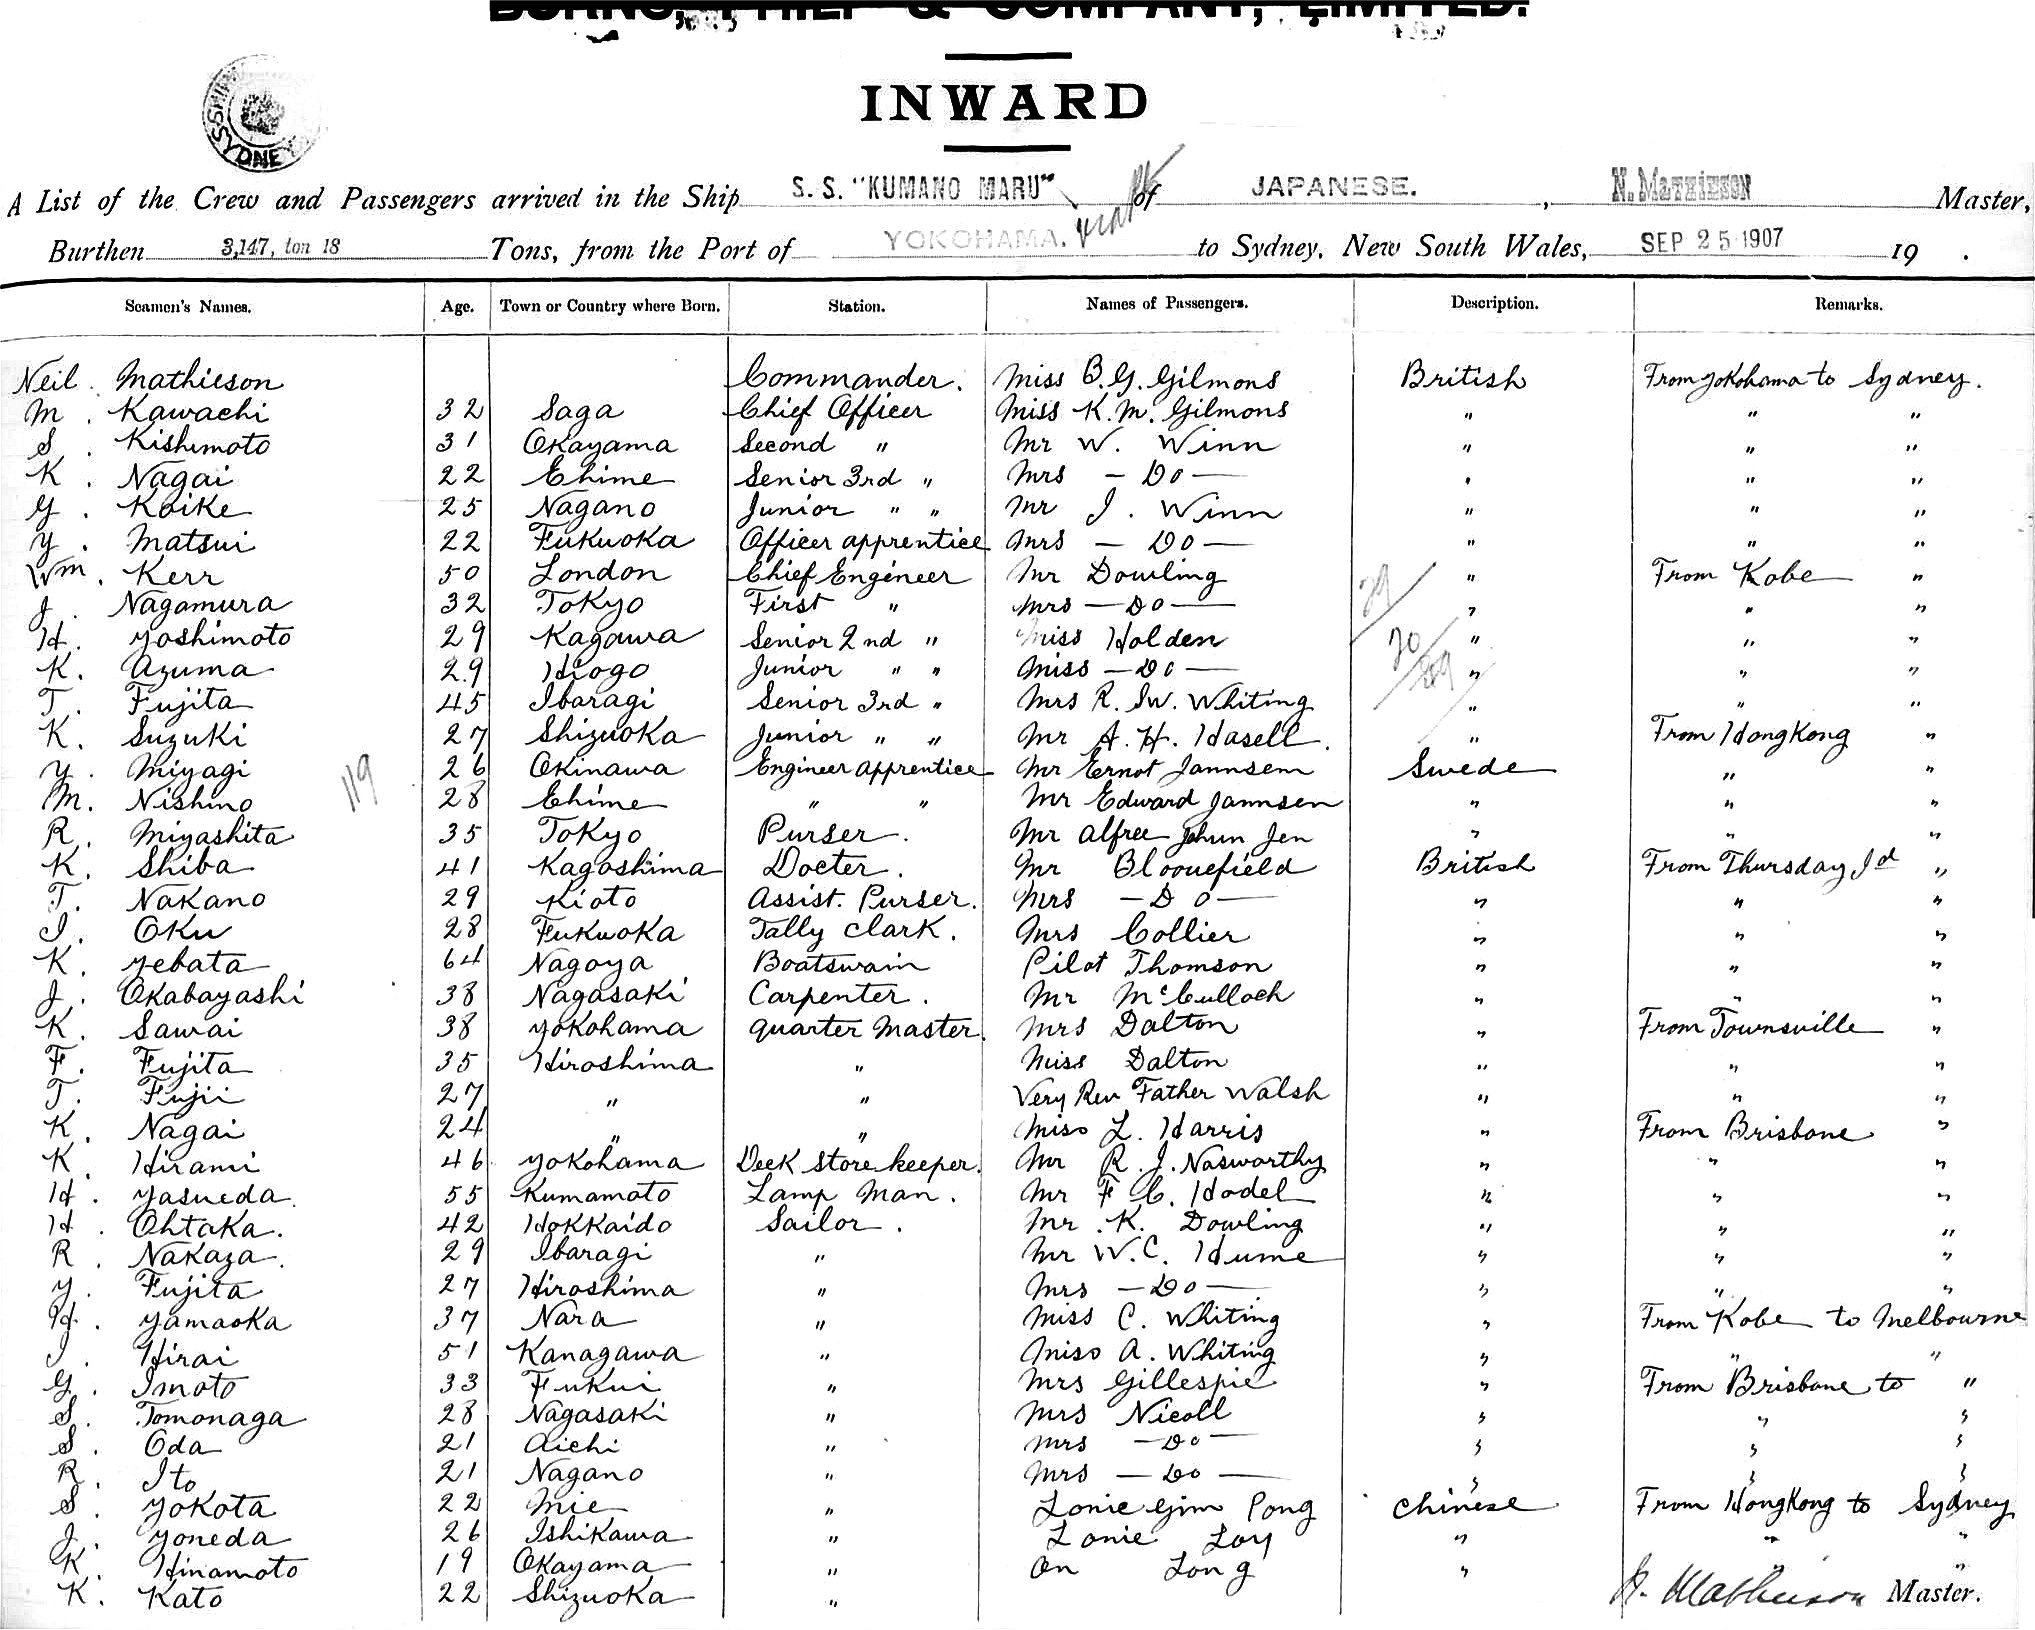 BURNS, PHILP & COMPANY, LIMITED.
INWARD
SYDNEY
A List of the Crew and Passengers arrived in the Ship S. S. "KUMANO MARU" of JAPANESE. , N. MATHIESON Master,
Burthen 3,147, ton 18 Tons, from the Port of YOKOHAMA. to Sydney, New South Wales, SEP 25 1907 19 .
Seamen's Names. Age. Town or Country where Born. Station. Names of Passengers. Description. Remarks.
Neil . Mathieson Commander. Miss B. G. Gilmons British From Yokohama to Sydney.
M . Kawachi 32 Saga Chief Officer Miss K. M. Gilmons " " "
S . Kishimoto 31 Okayama Second " Mr W. Winn " " "
K . Nagai 22 Ehime Senior 3rd " Mrs — Do — " " "
G . Koike 25 Nagano Junior " " Mr J. Winn " " "
Y . Matsui 22 Fukuoka Officer apprentice Mrs — Do — " " "
Wm . Kerr 50 London Chief Engineer Mr Dowling " From Kobe "
J . Nagamura 32 Tokyo First " Mrs — Do — " " "
H . Yoshimoto 29 Kagawa Senior 2nd " Miss Holden " " "
K. Azuma 29 Hiogo Junior " " Miss — Do — " " "
T . Fujita 45 Ibaragi Senior 3rd " Mrs R. Sw. Whiting " " "
K. Suzuki 27 Shizuoka Junior " " Mr A. H. Hasell. " From HongKong "
Y. Miyagi 26 Okinawa Engineer apprentice Mr Ernot Jannsem Swede " "
119
M. Nishino 28 Ehime " " Mr Edward Jannsen " " "
R. Miyashita 35 Tokyo Purser . Mr Alfree Johun Jen " " "
K. Shiba 41 Kagoshima Docter . Mr Bloouefield British From Thursday Id "
T. Nakano 29 Kioto Assist. Purser. Mrs — Do — " " "
I. Oku 28 Fukuoka Tally Clark . Mrs Collier " " "
K. Yebata 64 Nagoya Boatswain Pilot Thomson " " "
J . Okabayashi 38 Nagasaki Carpenter . Mr McCulloch " " "
K . Sawai 38 Yokohama Quarter Master. Mrs Dalton " From Townsville "
F. Fujita 35 Hiroshima " Miss Dalton " " "
T. Fujii 27 " " Very Rev Father Walsh " " "
K. Nagai 24 " " Miss L. Harris " From Brisbone "
K . Hirami 46 Yokohama Deck Store keeper. Mr R. J. Nasworthy " " "
H . Yasueda . 55 Kumamoto Lamp Man . Mr F C. Hodel " " "
H . Ohtaka. 42 Hokkaido Sailor . Mr . K. Dowling " " "
R . Nakaza . 29 Ibaragi " Mr W. C. Hume " " "
Y . Fujita 27 Hiroshima " Mrs — Do — " " "
H . Yamaoka 37 Nara " Miss C. Whiting " From Kobe to Melbourne
I . Hirai 51 Kanagawa " Miss A. Whiting " " "
G . Imoto 33 Fukui " Mrs Gillespie " From Brisbone to "
S . Tomonaga 28 Nagasaki " Mrs Nicoll " " "
S . Oda 21 Aichi " Mrs — Do — " " "
R . Ito 21 Nagano " Mrs — Do — " " "
S . Yokota 22 Mie " Lonie Gim Pong Chinese From HongKong to Sydney
J . Yoneda 26 Ishikawa " Lonie Loy " " "
K . Hinamoto 19 Okayama " On Long " " "
K . Kato 22 Shizuoka " N. Mathieson Master.